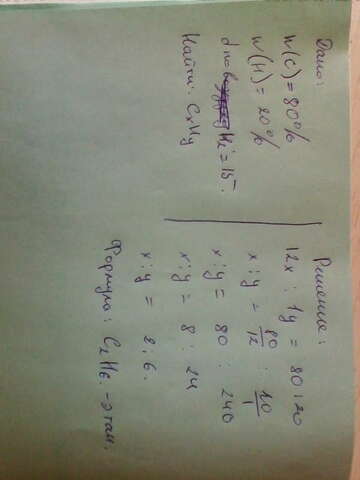 Дано:
W(C) = 80%
W(H) = 20%
d по H2 = 15.
Найти: CxHy
Решение:
12x : 1y = 80:20
x:y = 80/12 : 20/1
x:y = 80 : 240
x:y = 8 : 24
x:y = 2:6.
Формула: C2H6. - этан.